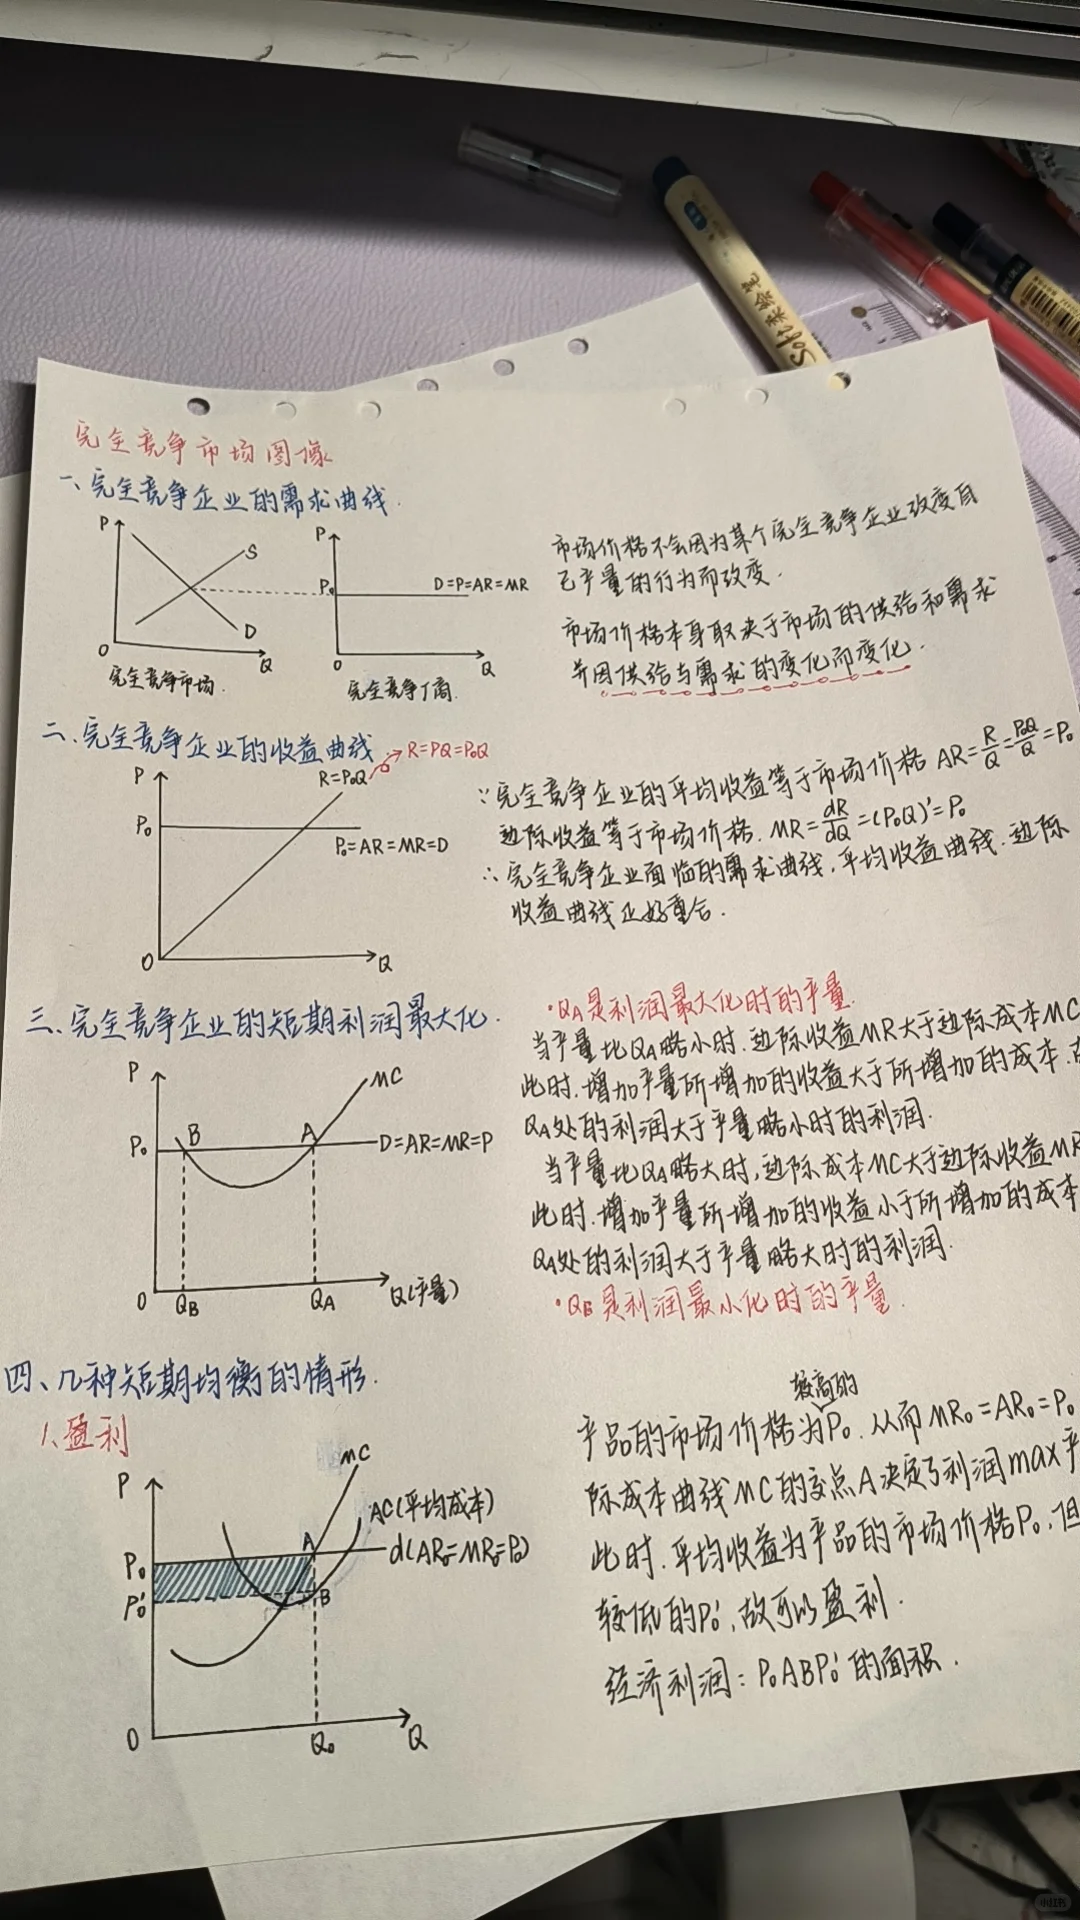 Soft柔绘笔
完全竞争市场图像
一、完全竞争企业的需求曲线.
P
S
D
O
Q
完全竞争市场.
P
P₀
D=P=AR=MR
O
Q
完全竞争厂商.
市场价格不会因为某个完全竞争企业改变自
己产量的行为而改变.
市场价格本身取决于市场的供给和需求
并因供给与需求的变化而变化.
二、完全竞争企业的收益曲线
P
R=P₀Q
R=PQ=P₀Q
P₀
P₀=AR=MR=D
O
Q
∵完全竞争企业的平均收益等于市场价格 AR=R/Q=P₀Q/Q=P₀
边际收益等于市场价格. MR=dR/dQ=(P₀Q)'=P₀
∴完全竞争企业面临的需求曲线,平均收益曲线.边际
收益曲线正好重合.
三、完全竞争企业的短期利润最大化.
P
MC
P₀
B
A
D=AR=MR=P
O
Q_B
Q_A
Q(产量)
·Q_A是利润最大化时的产量.
当产量比Q_A略小时.边际收益MR大于边际成本MC
此时.增加产量所增加的收益大于所增加的成本.
Q_A处的利润大于产量略小时的利润.
当产量比Q_A略大时,边际成本MC大于边际收益MR
此时.增加产量所增加的收益小于所增加的成本
Q_A处的利润大于产量略大时的利润.
·Q_B是利润最小化时的产量.
四、几种短期均衡的情形.
1、盈利
P
MC
AC(平均成本)
A
d(AR₀=MR₀=P₀)
P₀
P₀'
B
O
Q₀
Q
较高的
产品的市场价格为P₀.从而MR₀=AR₀=P₀
际成本曲线MC的交点A决定了利润max产
此时.平均收益为产品的市场价格P₀,但
较低的P₀',故可以盈利.
经济利润:P₀ABP₀'的面积.
小红书